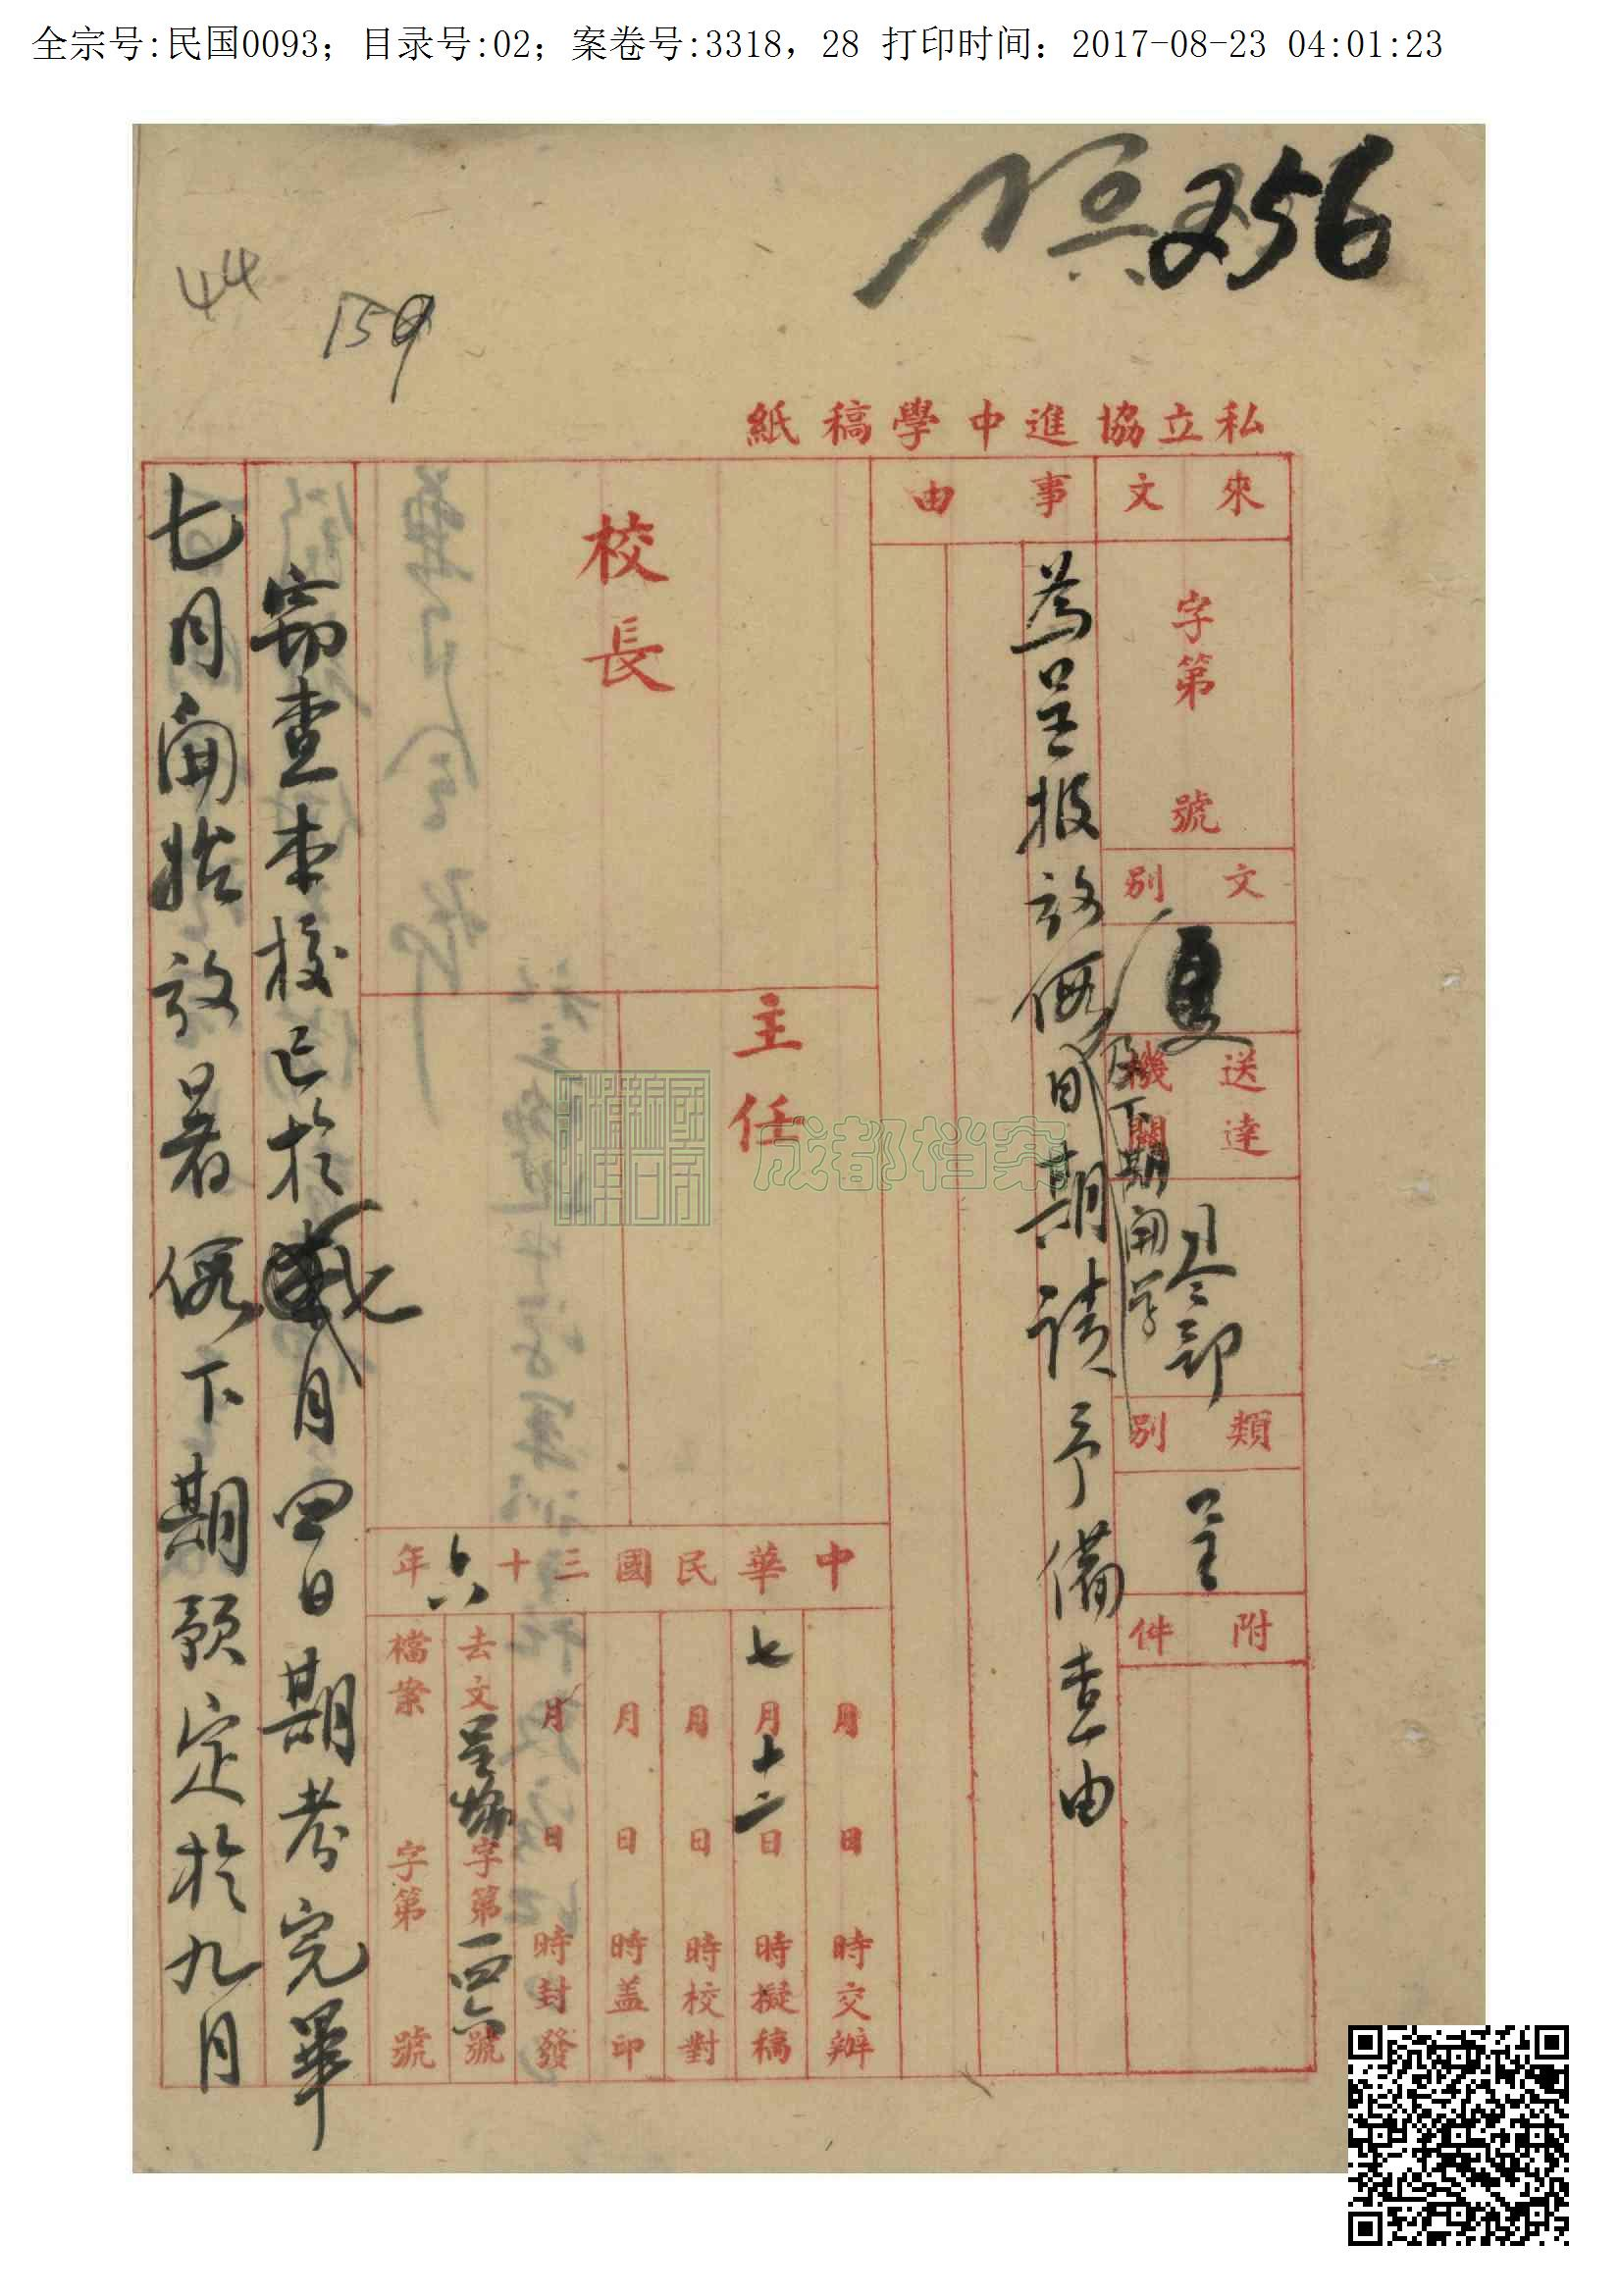 全宗号:民国0093; 目录号:02; 案卷号:3318, 28 打印时间: 2017-08-23 04:01:23
256
44
159
私立協進中學稿紙
來文
字第 號
文別
送達機關
司令部
類別
呈
附件
事由
為呈報放假日期及下期開學請予備查由
校長
主任
中華民國三十六年
月 日 時交辦
七月十二日 時擬稿
月 日 時校對
月 日 時盖印
月 日 時封發
去文呈 字第一四六號
檔案 字第 號
竊查本校已於七月四日期考完畢
七月開始放暑假下期預定於九月
成都档案